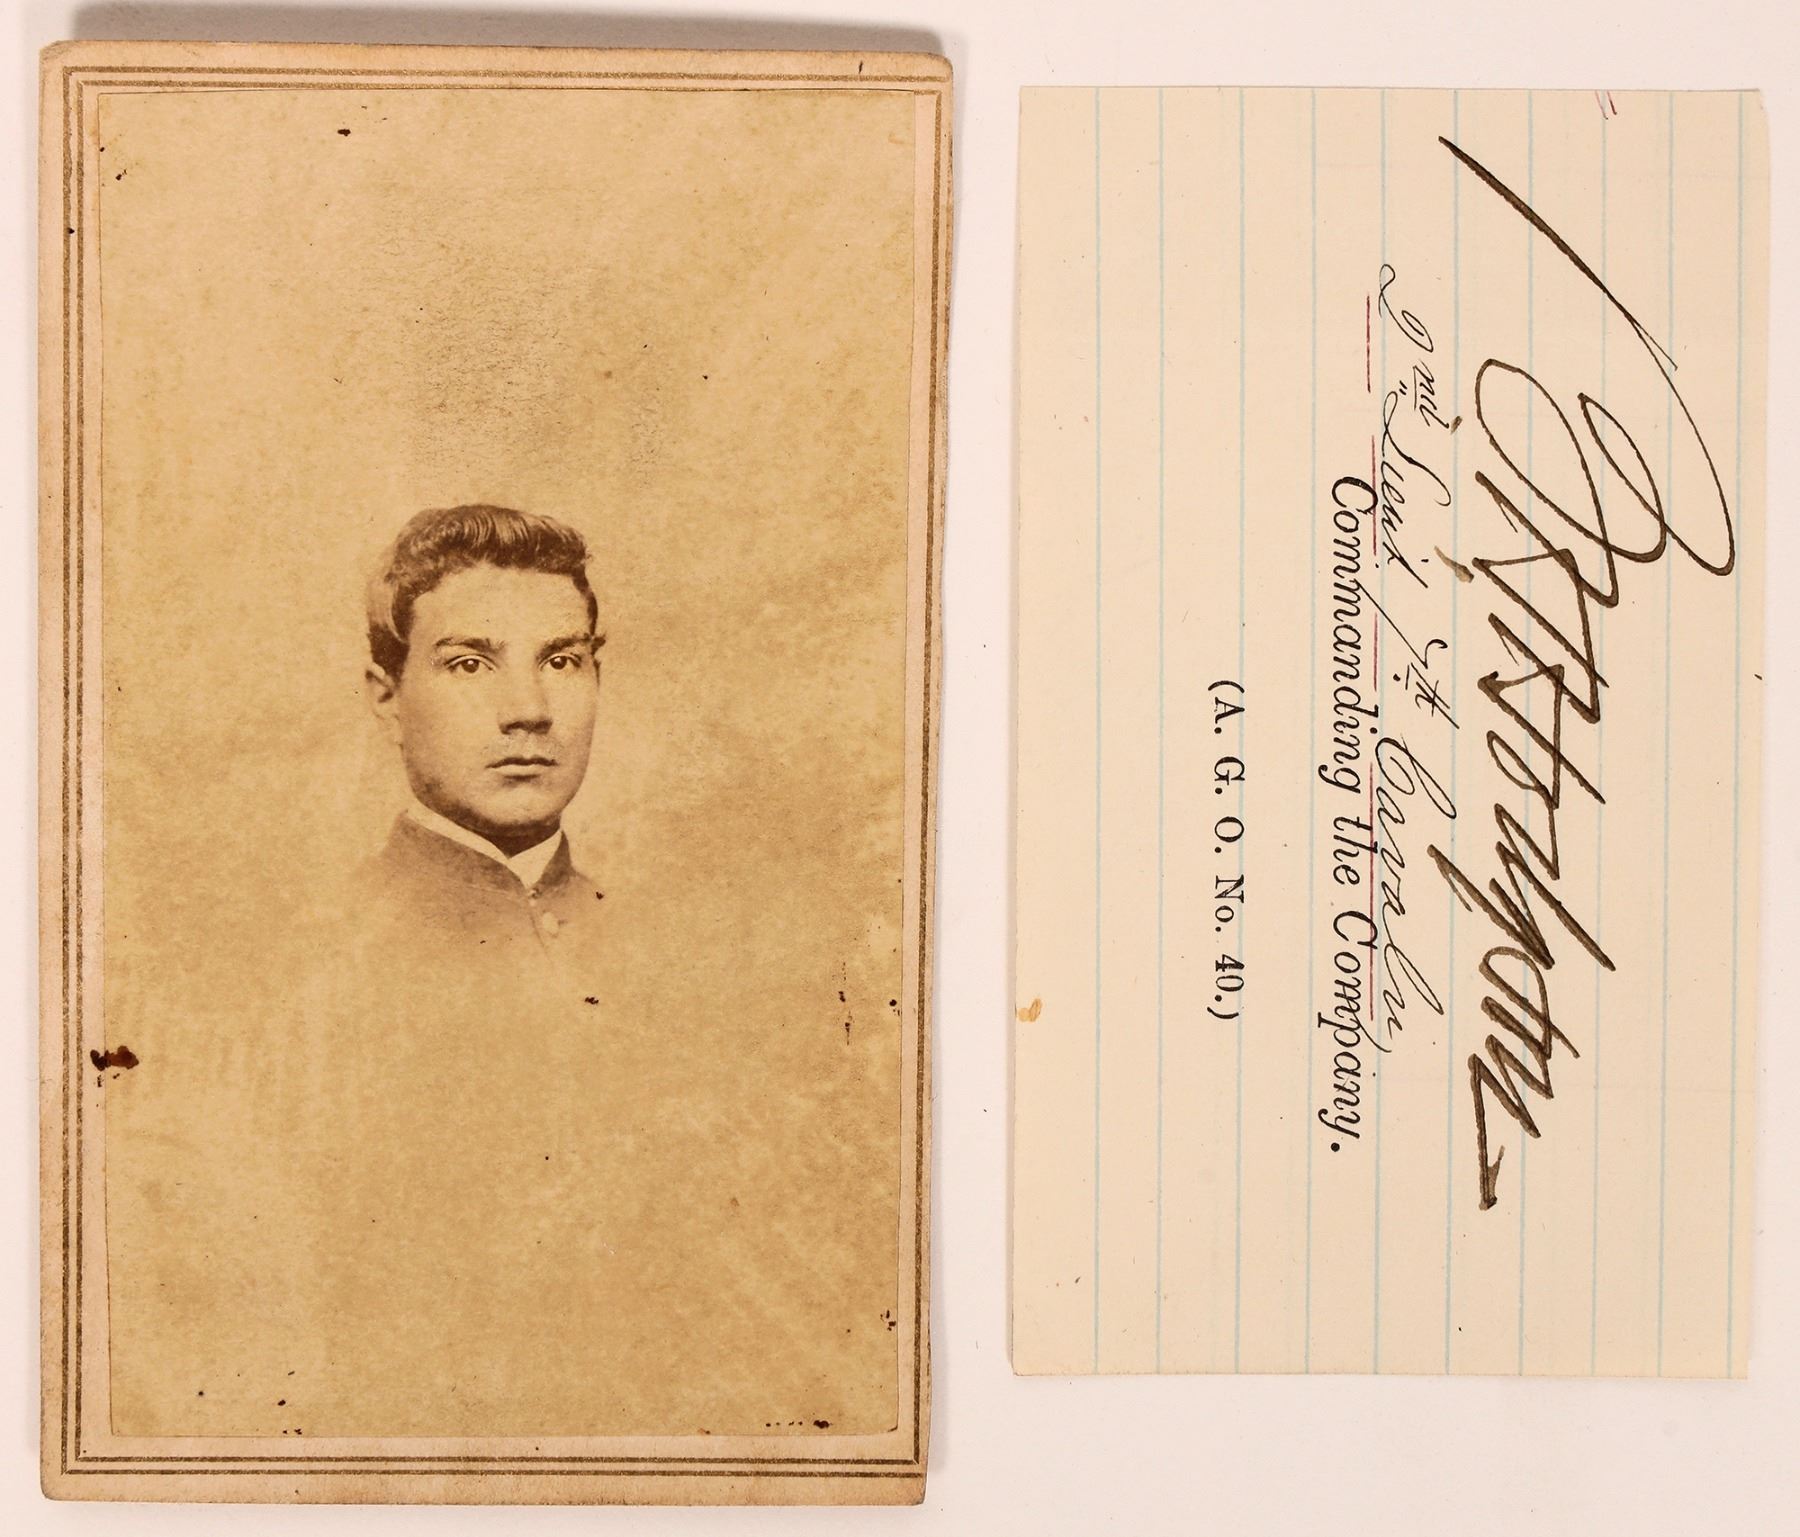 2nd Lieut 7th Cavalry
Commanding the Company.
(A. G. O. No. 40.)